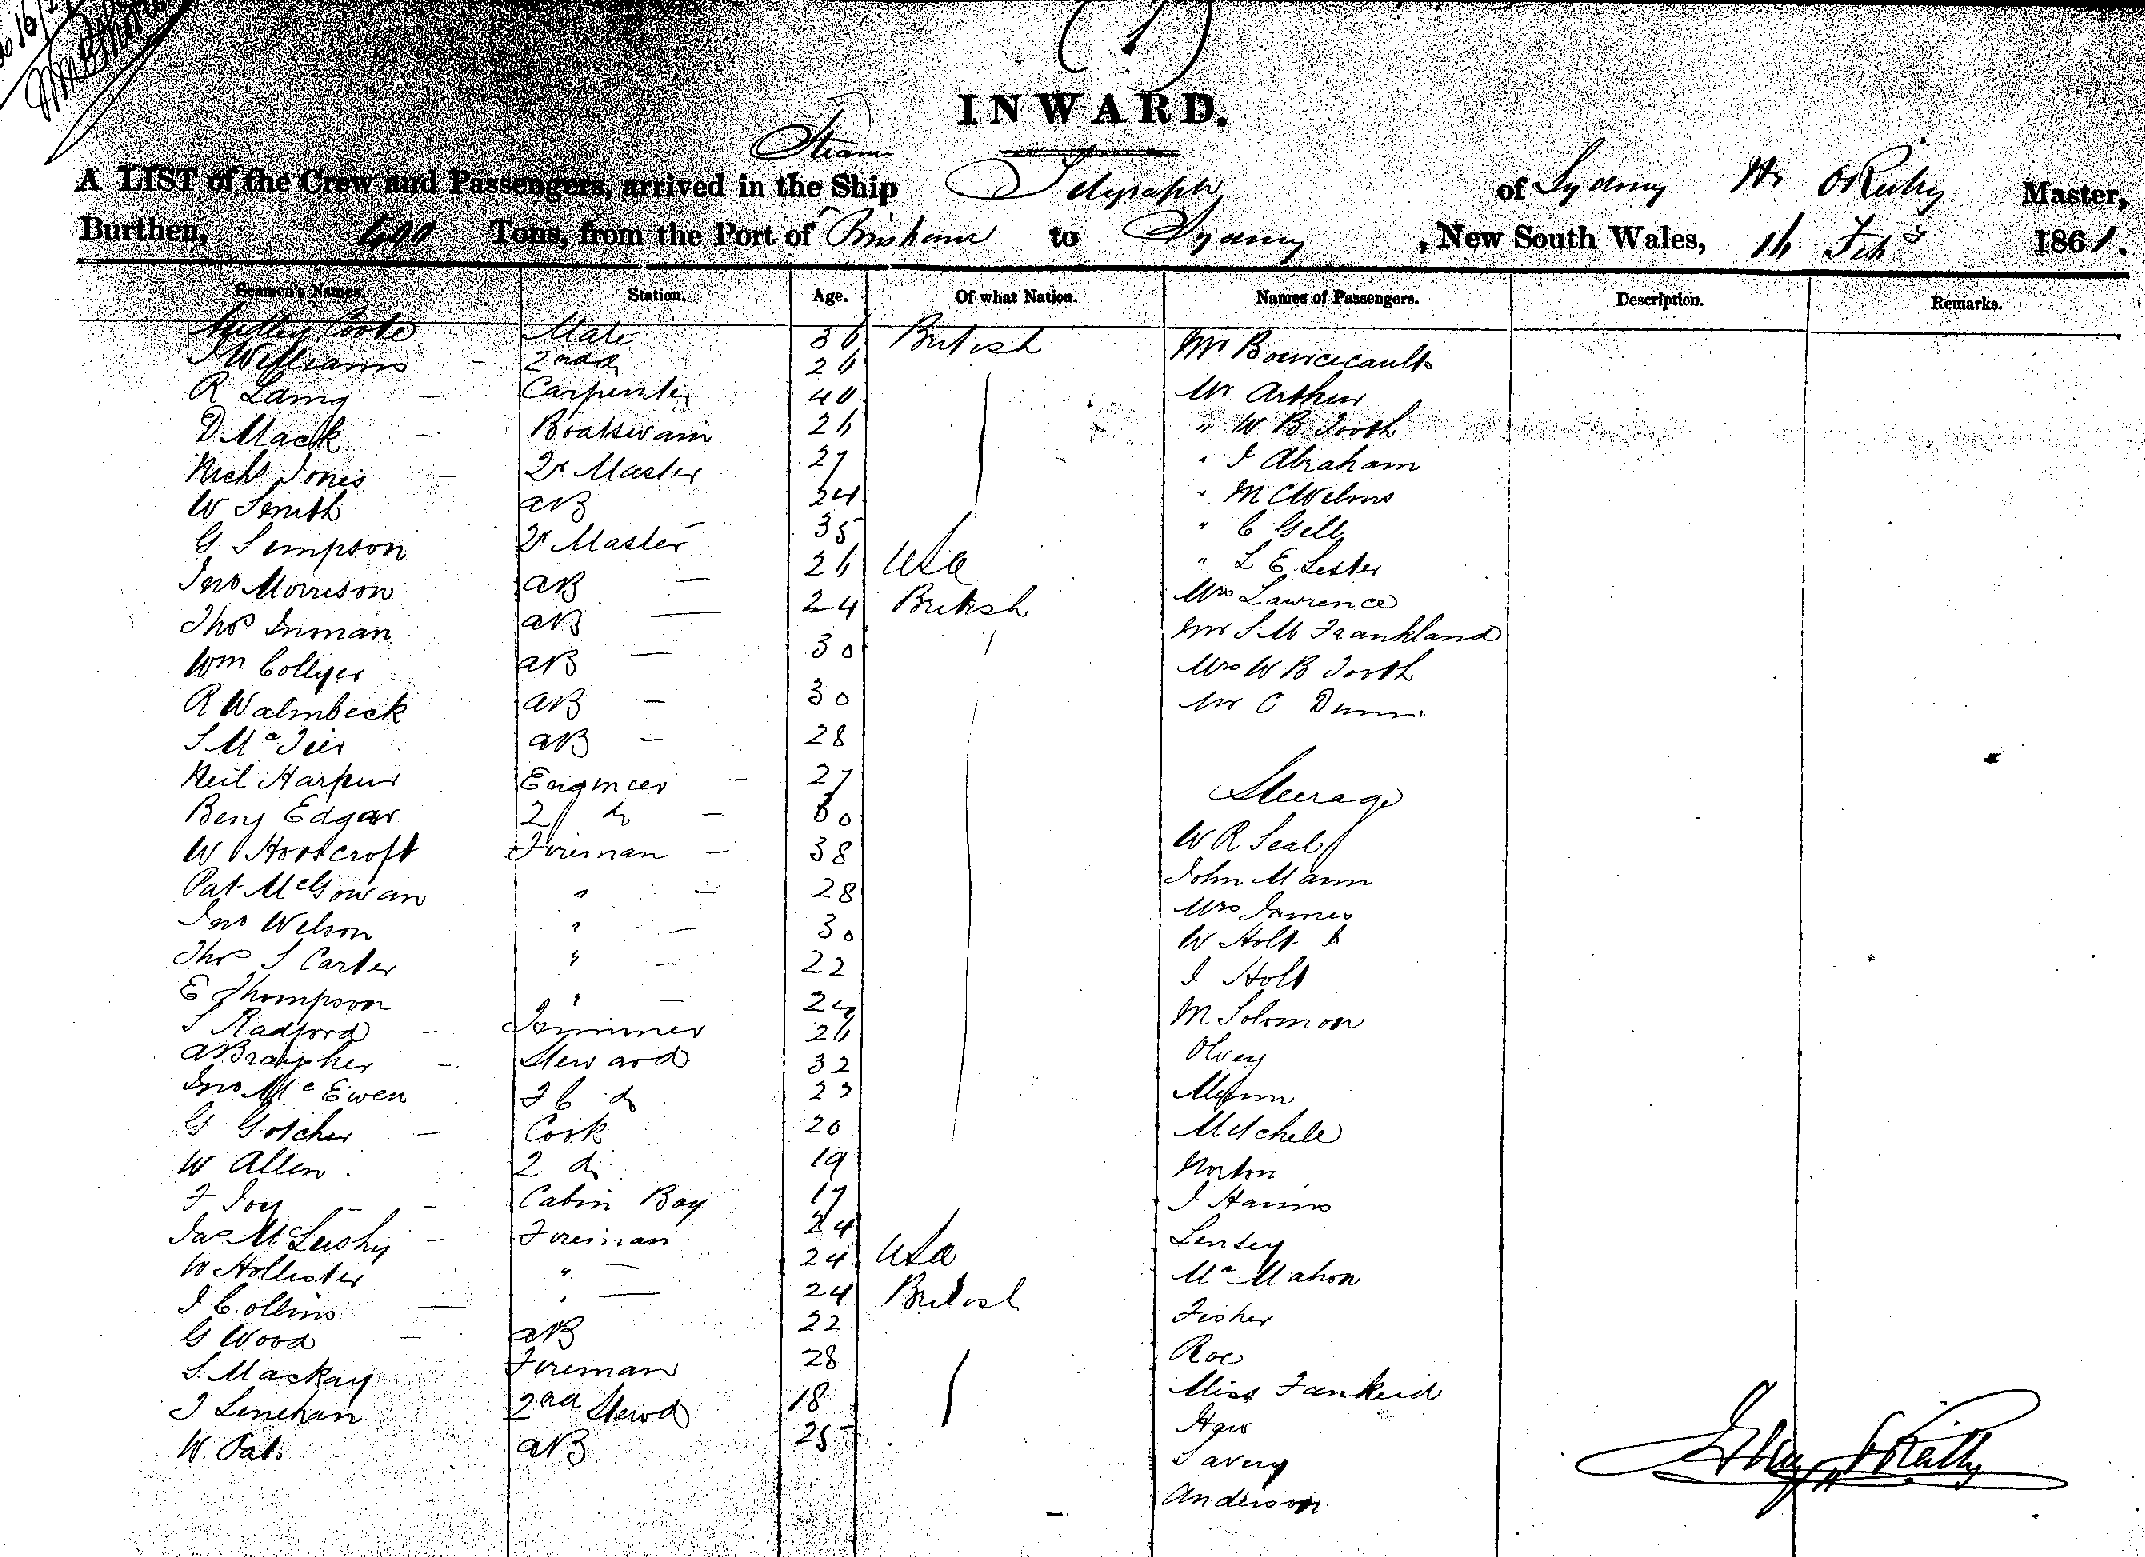 INWARD.
Steam
A LIST of the Crew and Passengers, arrived in the Ship Telegraph of Sydney H O'Reilly Master,
Burthen, 400 Tons, from the Port of Brisbane to Sydney, New South Wales, 16 Feby 1861.
Seamen's Names. Station. Age. Of what Nation. Names of Passengers. Description. Remarks.
Cooke Mate 36 British Mr Bourcicault
J Williams 2nd do 26 Mr Arthur
R Laing Carpenter 40 " W B Tooth
D Mack Boatswain 26 " J Abraham
Richd Jones Qr Master 27 " McWelms
W Smith AB 24 " C Gill
G Simpson Qr Master 35 " L E Lester
Jno Morrison AB 26 USA Mrs Lawrence
Thos Inman AB 24 British Mr S M Frankland
Wm Collyer AB 30 Mrs W B Tooth
R Walmbeck AB 30 Mr C Dunn
S McTier AB 28
Neil Harper Engineer 27 Steerage
Benj Edgar 2 do 30 W R Seal
W Horscroft Fireman 38 John Mann
Pat McGowan " 28 Mrs James
Jno Welson " 30 W Holt
Thos S Carter " 22 J Holt
E Thompson " 24 M Solomon
S Radford Trimmer 26 Olvey
A Bragher Steward 32
Jno McEwen F C do 23 Mitchell
G Gotcher Cook 20 Norton
W Allen 2 do 19 J Harris
F Joy Cabin Boy 17 Lensey
Jas McLeishy Fireman 24 McMahon
W Hollister " 24 USA Fisher
J Collins " 24 British Roe
G Wood AB 22 Miss Fankeid
S. Mackay Fireman 28 Haw
J Linehan 2nd Stewd 18 Savery
W Pat. AB 25 Anderson